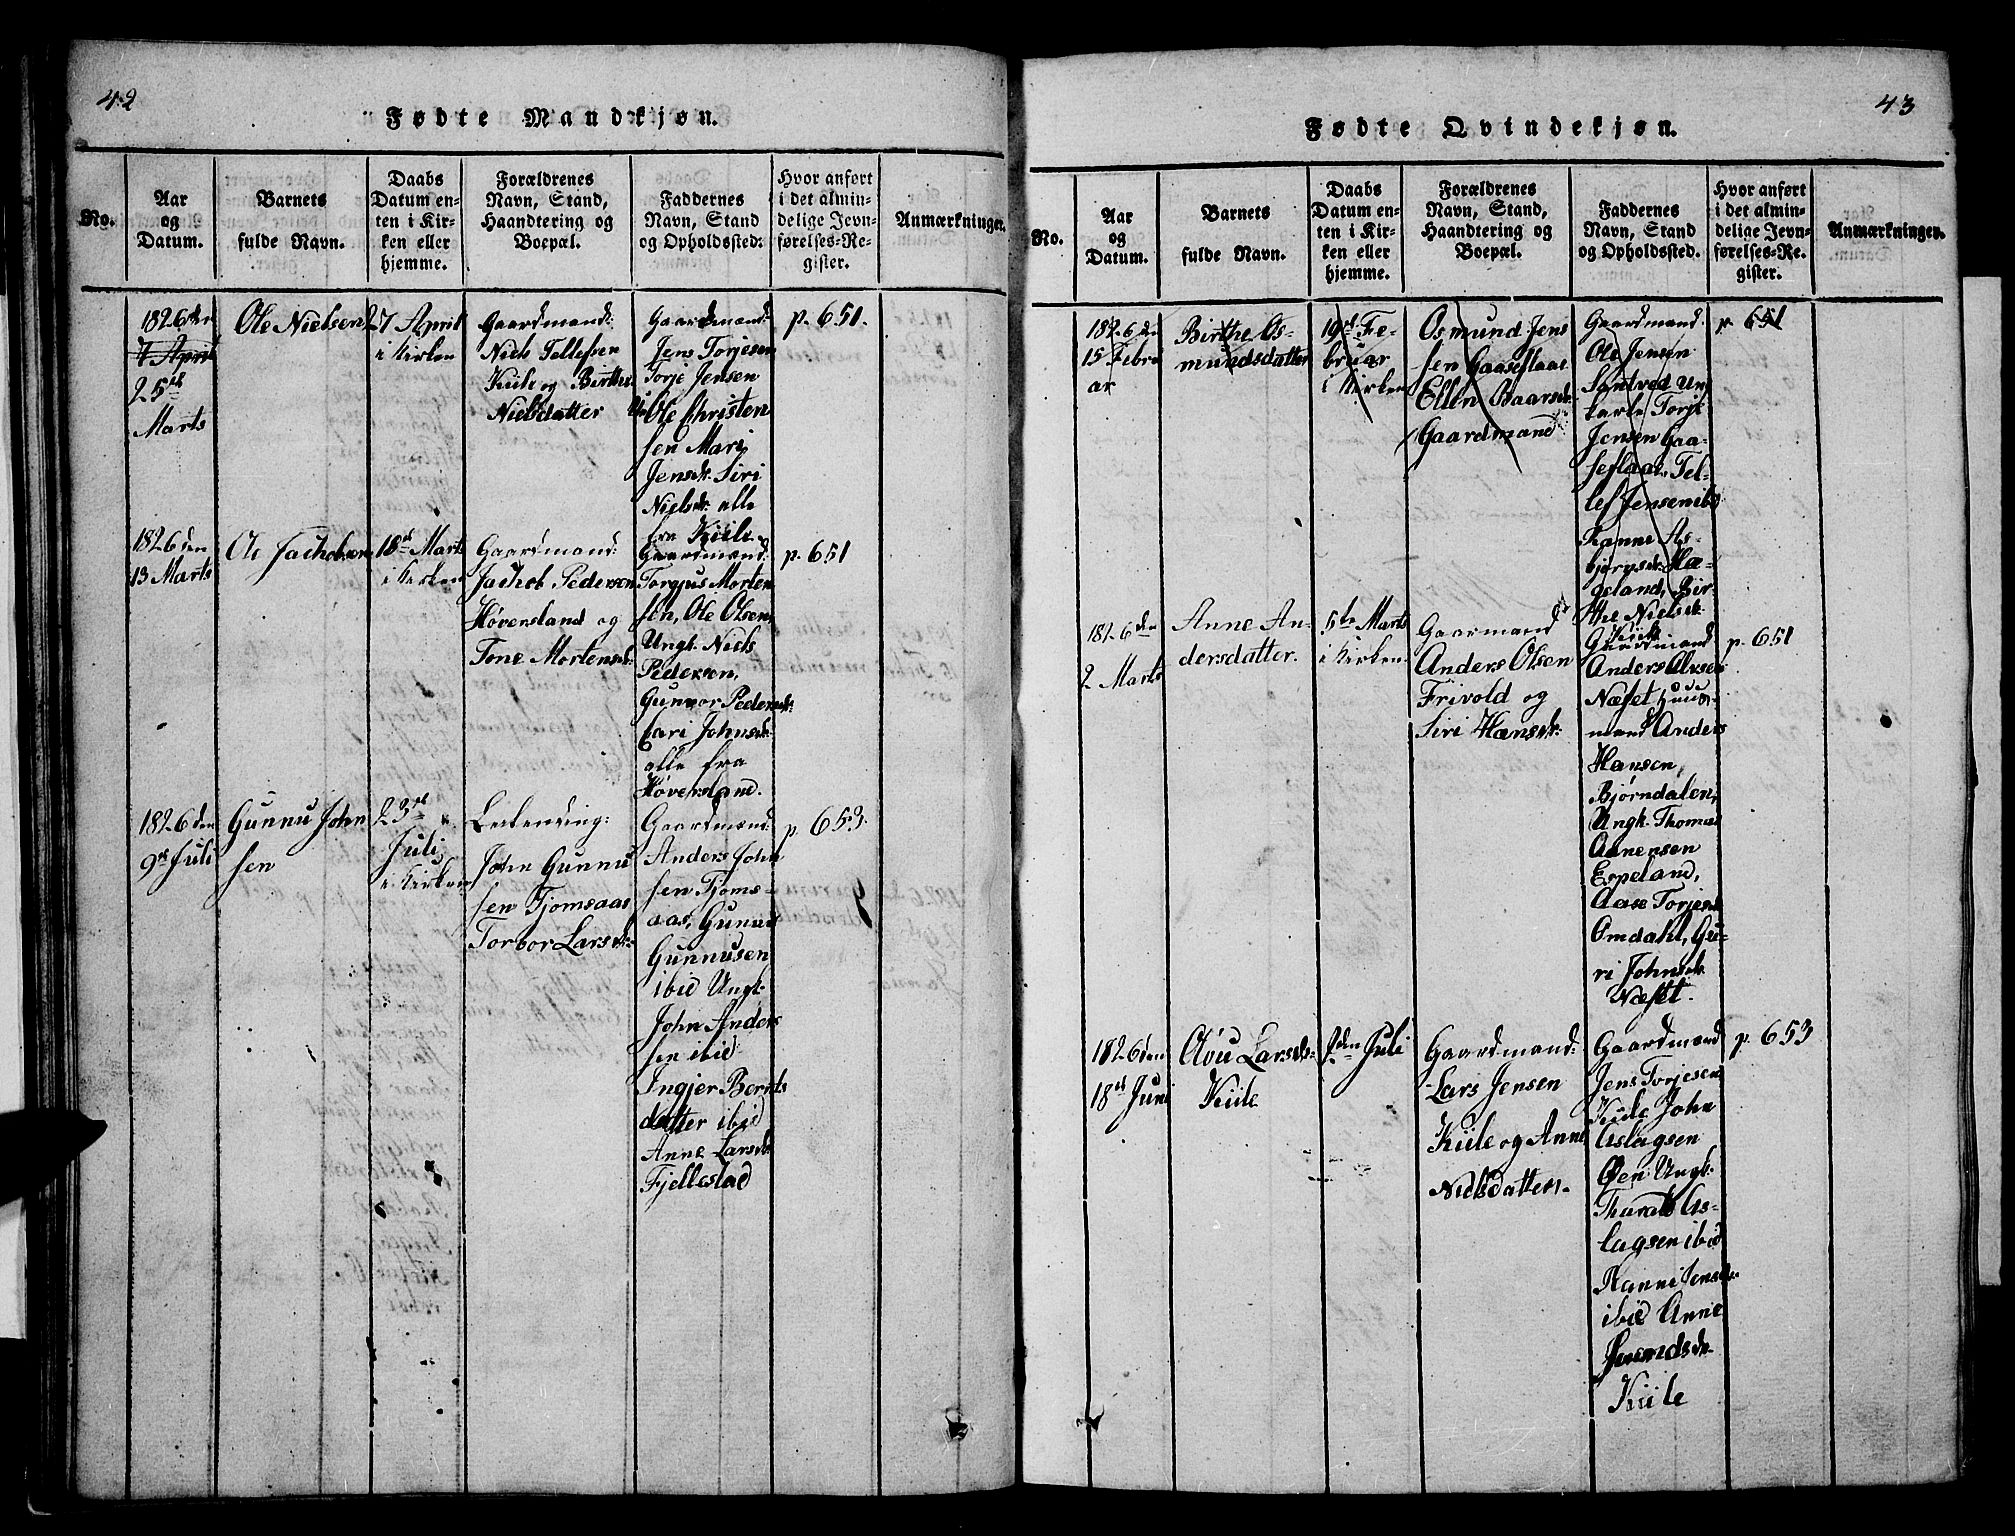 42
Fødte Mandkjøn.
No.
Aar
og
Datum.
Barnets
fulde Navn.
Daabs
Datum en-
ten i Kir-
ken eller
hjemme.
Forældrenes
Navn, Stand,
Haandtering og
Boepæl.
Faddernes
Navn, Stand
og Opholdssted.
Hvor anført
i det almin-
delige Jevn-
førelses-Re-
gister.
Anmærkninger.
1826 den
7 April
25de
Marts
Ole Nielsen
27 April
i Kirken
Gaardmand:
Niels Tellefsen
Kiile og Birthe
Nielsdatter
Gaardmænd:
Jens Torjesen
Torje Jensen
Ole Christen
sen Mari
Jensdr. Siri
Nielsdr. alle
fra Kiile
p. 651.
1826 den
13 Marts
Ole Jachobsen
18de Marts
i Kirken
Gaardmand:
Jachob Pedersen
Høversland og
Tone Mortensdr.
Gaardmænd:
Torgius Morten
sen, Ole Olsen,
Ungk. Niels
Pedersen,
Gunvor Pedersdr.
Cari Johnsdr.
alle fra
Høversland.
p. 651
1826 den
9de Juli
Gunnu John
sen
23de
Juli
i Kirken
Leilending:
John Gunnu
sen Tjomsaas
Torbor Larsdr.
Gaardmænd:
Anders John
sen Tjoms-
aas, Gunnu
Gunnusen
ibid Ungk.
John Anders
sen ibid
Ingjer Bernts
datter ibid
Anne Larsdr.
Fjellestad
p. 653.
43
Fødte Qvindekjøn.
No.
Aar
og
Datum.
Barnets
fulde Navn.
Daabs
Datum en-
ten i Kir-
ken eller
hjemme.
Forældrenes
Navn, Stand,
Haandtering og
Boepæl.
Faddernes
Navn, Stand
og Opholdssted.
Hvor anført
i det almin-
delige Jevn-
førelses-Re-
gister.
Anmærkninger.
1826 den
15 Febru
ar
Birthe Os-
mundsdatter
19de Fe-
bruar
i Kirken
Osmund Jens
sen Gaaseflaae
Ellen Baarsdr.
Gaardmand
Gaardmand:
Ole Jensen
Santved Un
karle Torje
Jensen Gaa-
seflaae Tel-
lef Jensen ibid
Ranne As-
bjørnsdr. Hæ-
geland, Bir-
the Nielsdr.
Kiile
p. 651
1826 den
2 Marts
Anne An-
dersdatter.
5te Marts
i Kirken.
Gaarmand
Anders Olsen
Frivold og
Siri Hansdr.
Gaardmand
Anders Olsen
Næset Huus-
mand Anders
Hansen,
Bjørndalen,
Ungk. Thomas
Aanensen
Espeland,
Aase Torjesdr.
Omdahl, Gu-
ri Johnsdr.
Næset.
p. 651
1826 den
18de Juni
Olvu Larsdr.
Kiile
2den Juli
Gaardmand:
Lars Jensen
Kiile og Anne
Nielsdatter.
Gaardmænd
Jens Torjesen
Kiile John
Aslagsen
Øen: Ungk.
Tharald As-
lagsen ibid
Ranni Jensdr.
ibid Anne
Kiile
p. 653